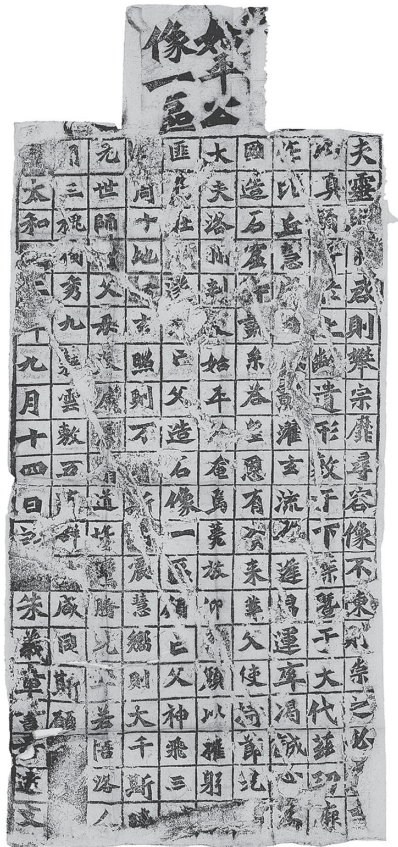 始平公
像一區
夫靈啟則攀宗靡尋容像不陳則崇之必
真顏於上遺形敷于下葉暨于大代茲功厥
作比丘慧濯玄流邀昌運率竭誠心為
國造石窟系答皇恩有資來業父使持節光
大夫洛州刺史始平公奄焉薨放仰顏以摧躬
匪在遂亡父造石像一區願亡父神飛三
周十地玄照則万震慧嚮則大千斯
元世師父母眷屬道場騰兜若悟洛人
間三槐獨秀九蕀雲敷五群咸同斯願
太和二年九月十四日訖朱義章書孟達文